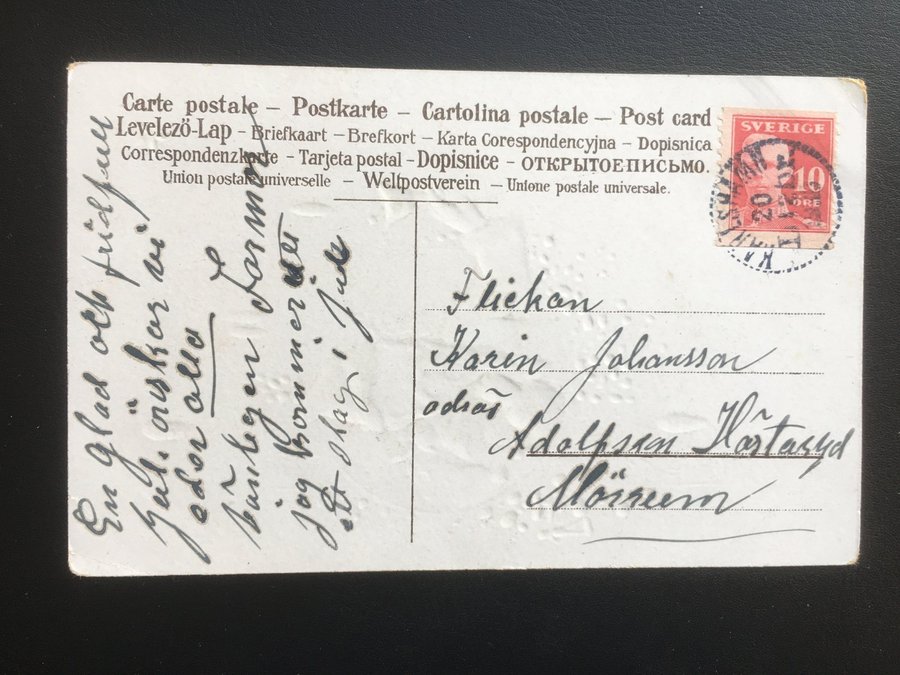 Carte postale – Postkarte – Cartolina postale – Post card
Levelezö-Lap - Briefkaart – Brefkort - Karta Corespondencyjna – Dopisnica
Correspondenzkarte - Tarjeta postal - Dopisnice - ОТКРЫТОЕПИСЬМО.
Union postale universelle – Weltpostverein – Unione postale universale.
SVERIGE
10
ÖRE
KARLSHAMN
20
En glad och fridfull
Jul. önskar vi
eder alla
jag kommer
ett slag i jul
Flickan
Karin Johansson
adräs
Adolfsen